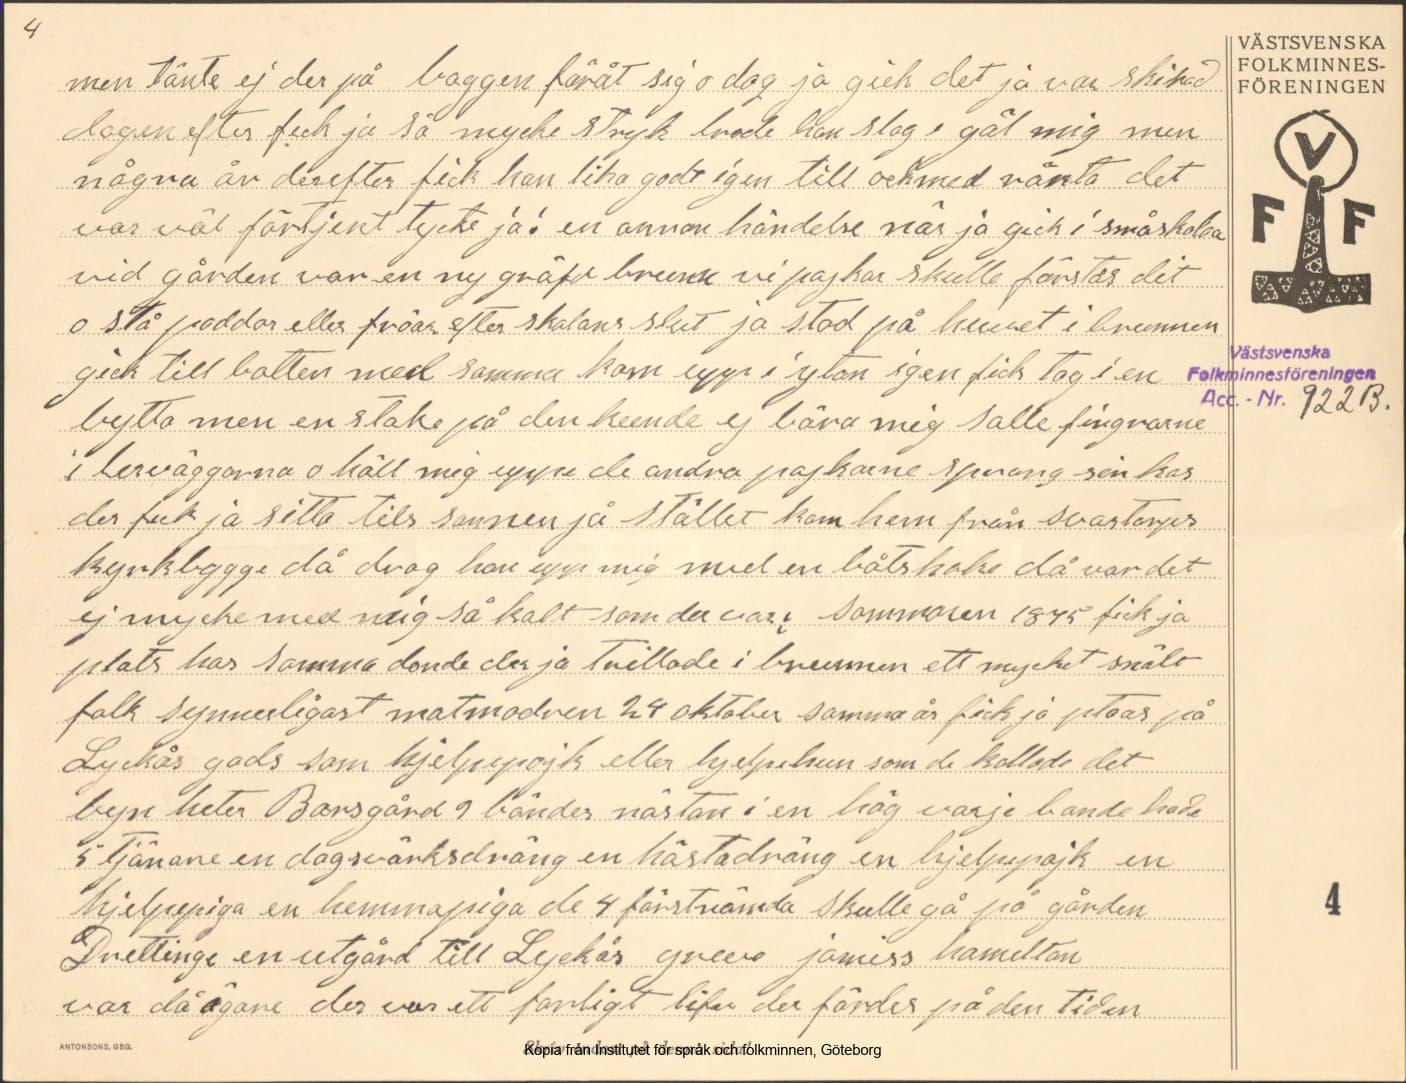 4
men tänte ej der på baggen föråt sig o dog ja gick det ja var skikad
dagen efter fick ja så mycke stryk trode han slog i gäl mig men
några år derefter fick han lika godt igen till och med ränta det
var väl förtjent tycte ja! en annan händelse när ja gick i småskolan
vid gården var en ny gräfd brunn vi pojkar skulle förstås dit
o slå poddor eller fröar efter skolans slut ja stod på huvet i brunnen
gick till botten med samma kom upp i ytan igen fick tag i en
bytta men en stake på den kunde ej bära mig satte fingrarne
i lerväggarna o höll mig uppe de andra pojkarne sprang sin kos
der fick ja sitta tils sonnen på stället kom hem från svartorps
kyrkbygge då drog han upp mig med en båtshake då var det
ej mycke med mig så kalt som de var; sommaren 1875 fick ja
plats hos samma bonde der ja trillade i brunnen ett mycket snält
folk synnerligast matmodren 24 oktober samma år fick ja plats på
Lyckås gods som hjelpepojk eller hjelpehun som de kallade det
byn heter Borsgård 9 bönder nästan i en hög varje bonde hade
5 tjänare en dagsvärksdräng en hästadräng en hjelpepojk en
hjelpepiga en hemmapiga de 4 förstnämda skulle gå på gården
Drettinge en utgård till Lyckås greve jamess hamelton
var då ägare der var ett farligt lifv der fördes på den tiden
VÄSTSVENSKA
FOLKMINNES-
FÖRENINGEN
V
F F
Västsvenska
Folkminnesföreningen
Acc. - Nr. 922 B.
4
ANTONSONS, GBG.
Kopia från Institutet för språk och folkminnen, Göteborg